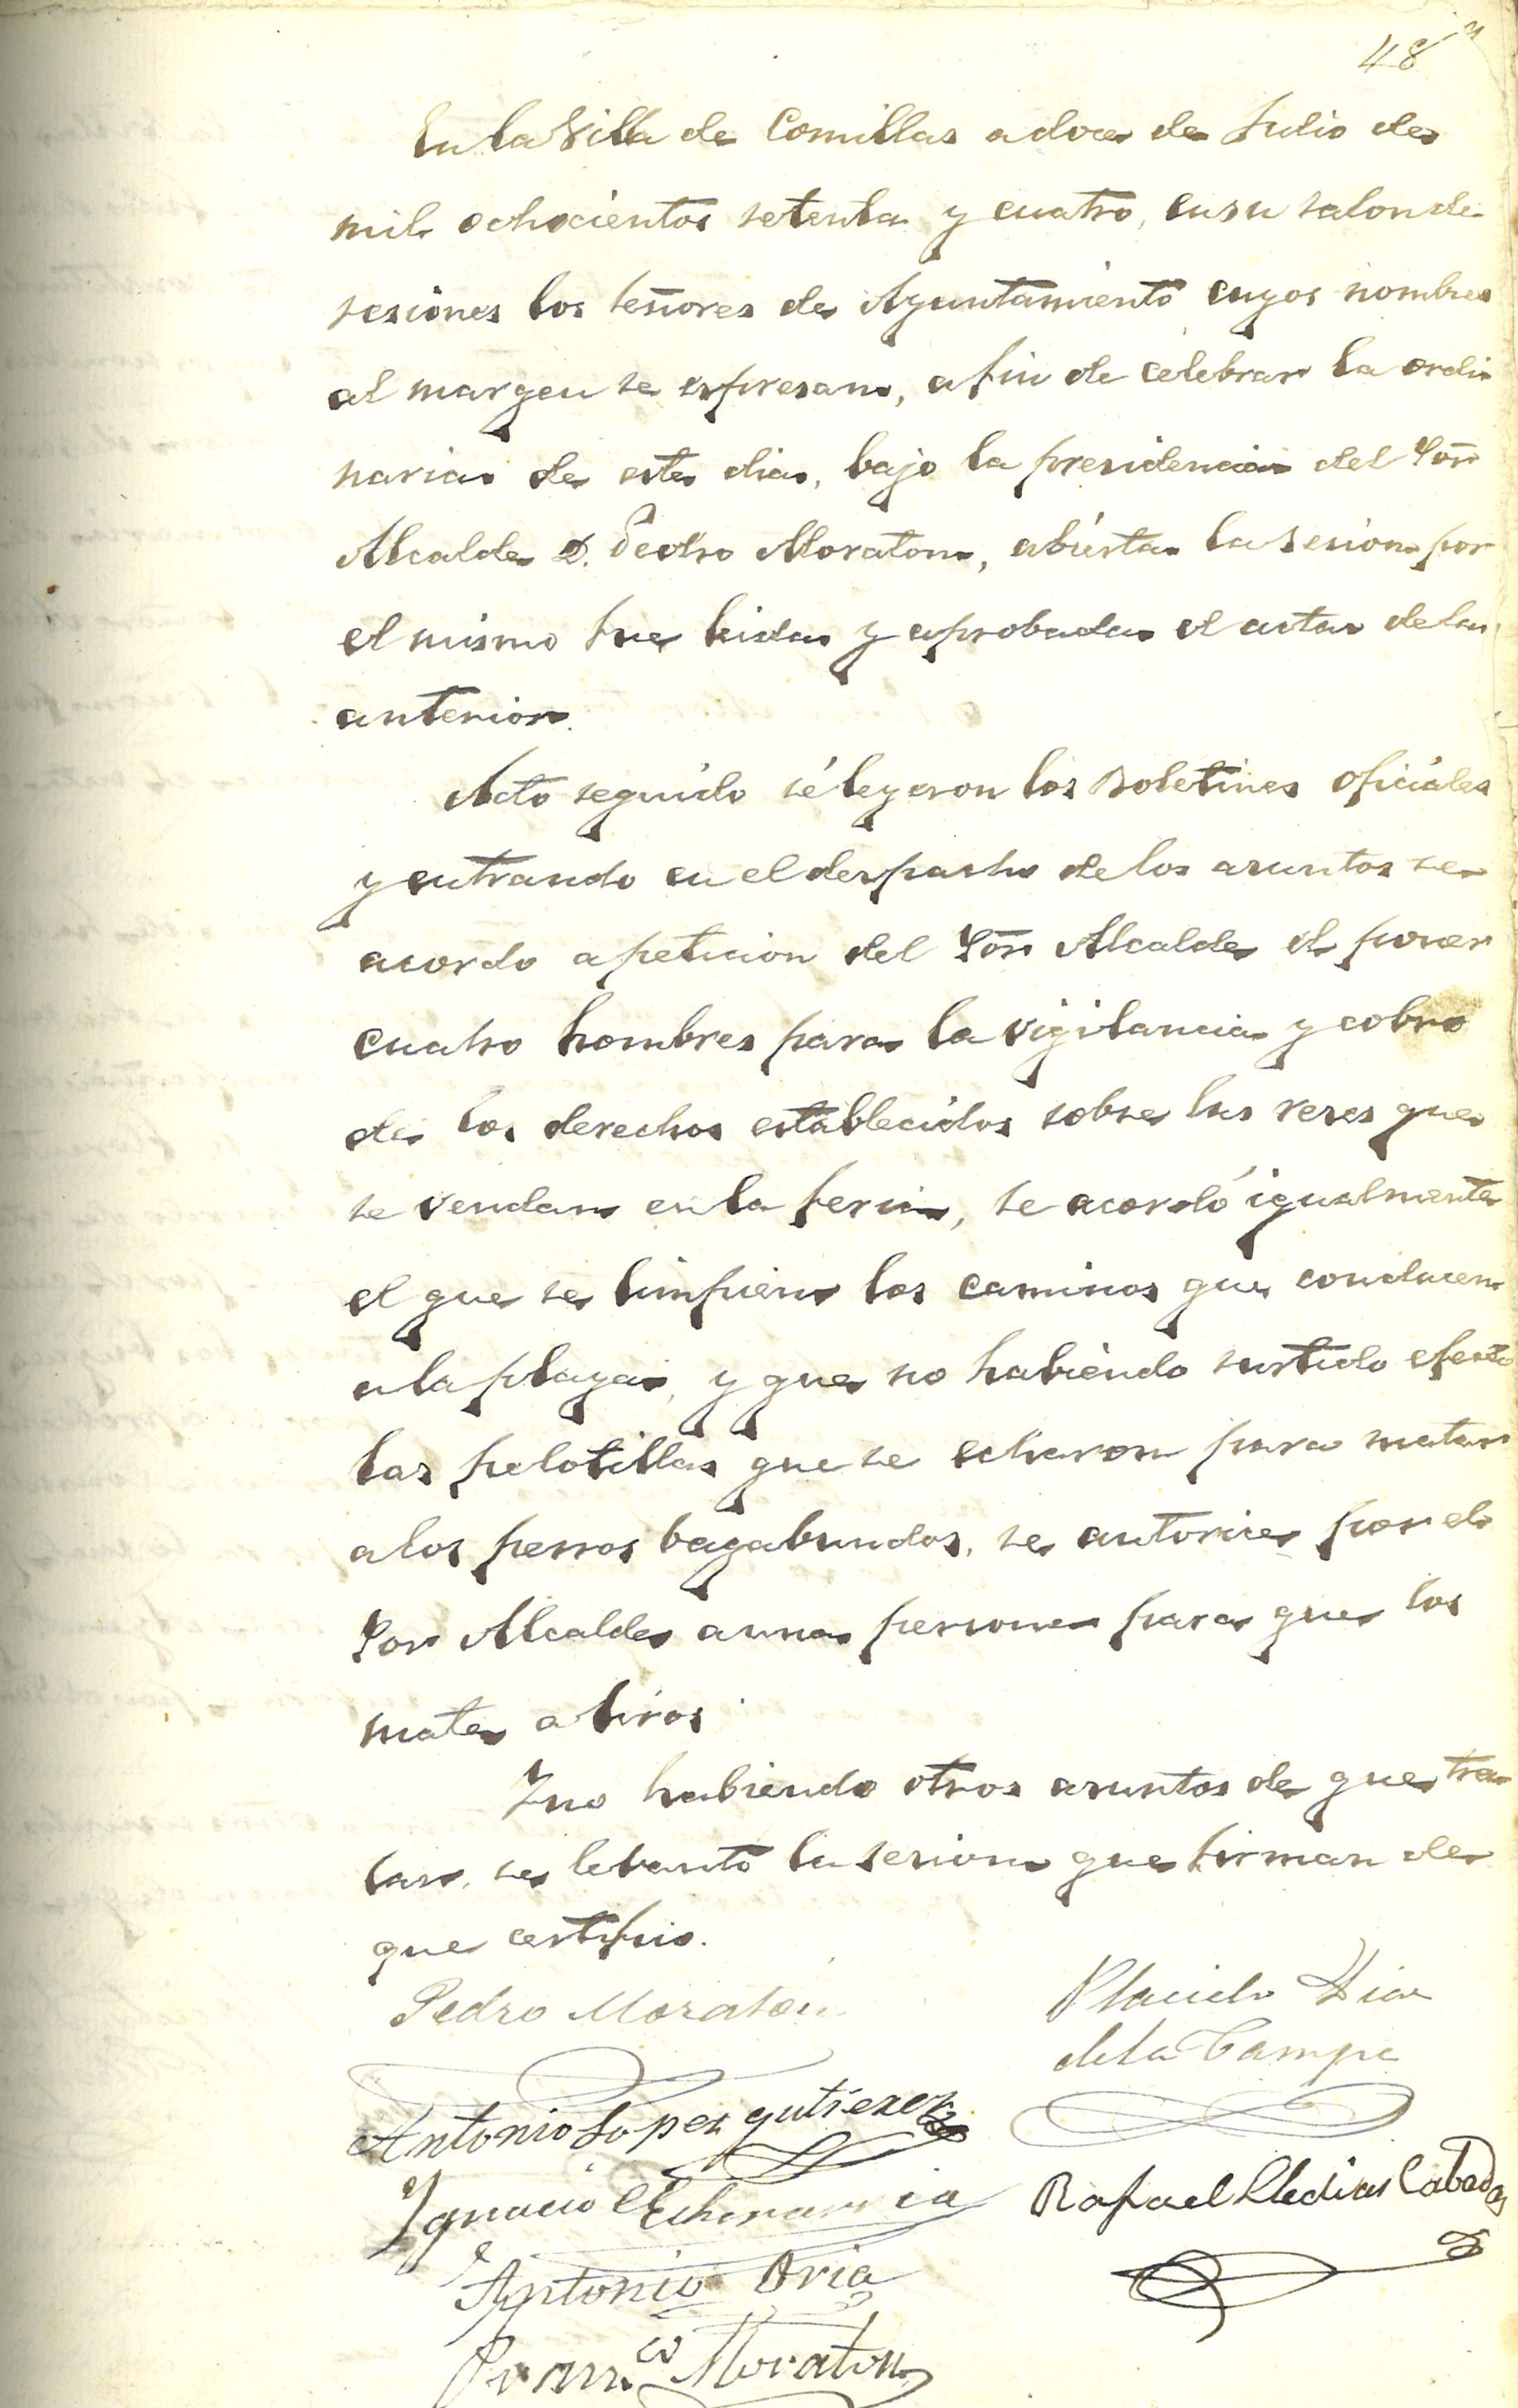 48
En la Villa de Comillas a doce de Julio de
mil ochocientos setenta y cuatro, en su salon de
sesiones los señores de Ayuntamiento cuyos nombres
al margen se espresan, a fin de celebrar la ordi
naria de este dia, bajo la presidencia del Sõr
Alcalde D. Pedro Moraton, abierta la sesion por
el mismo fue leida y aprobada el acta de la
anterior.
Acto seguido se leyeron los Boletines oficiales
y entrando en el despacho de los asuntos se
acordo a peticion del Sõr Alcalde el poner
cuatro hombres para la vigilancia y cobro
de los derechos establecidos sobre las reses que
se vendan en la feria, se acordó igualmente
el que se limpien los caminos que conducen
a la playa, y que no habiendo surtido efecto
las pelotillas que se echaron para matar
a los perros bagabundos, se autorice por el
Sor Alcalde a una persona para que los
mate a tiros.
Y no habiendo otros asuntos de que tra
tar, se lebantó la sesion que firman de
que certifico.
Pedro Moratón
Placido Diaz
de la Campa
Antonio Lopez gutierez
Ignacio Echavarria
Rafael Cabeda
Antonio Oria
Franco Moraton